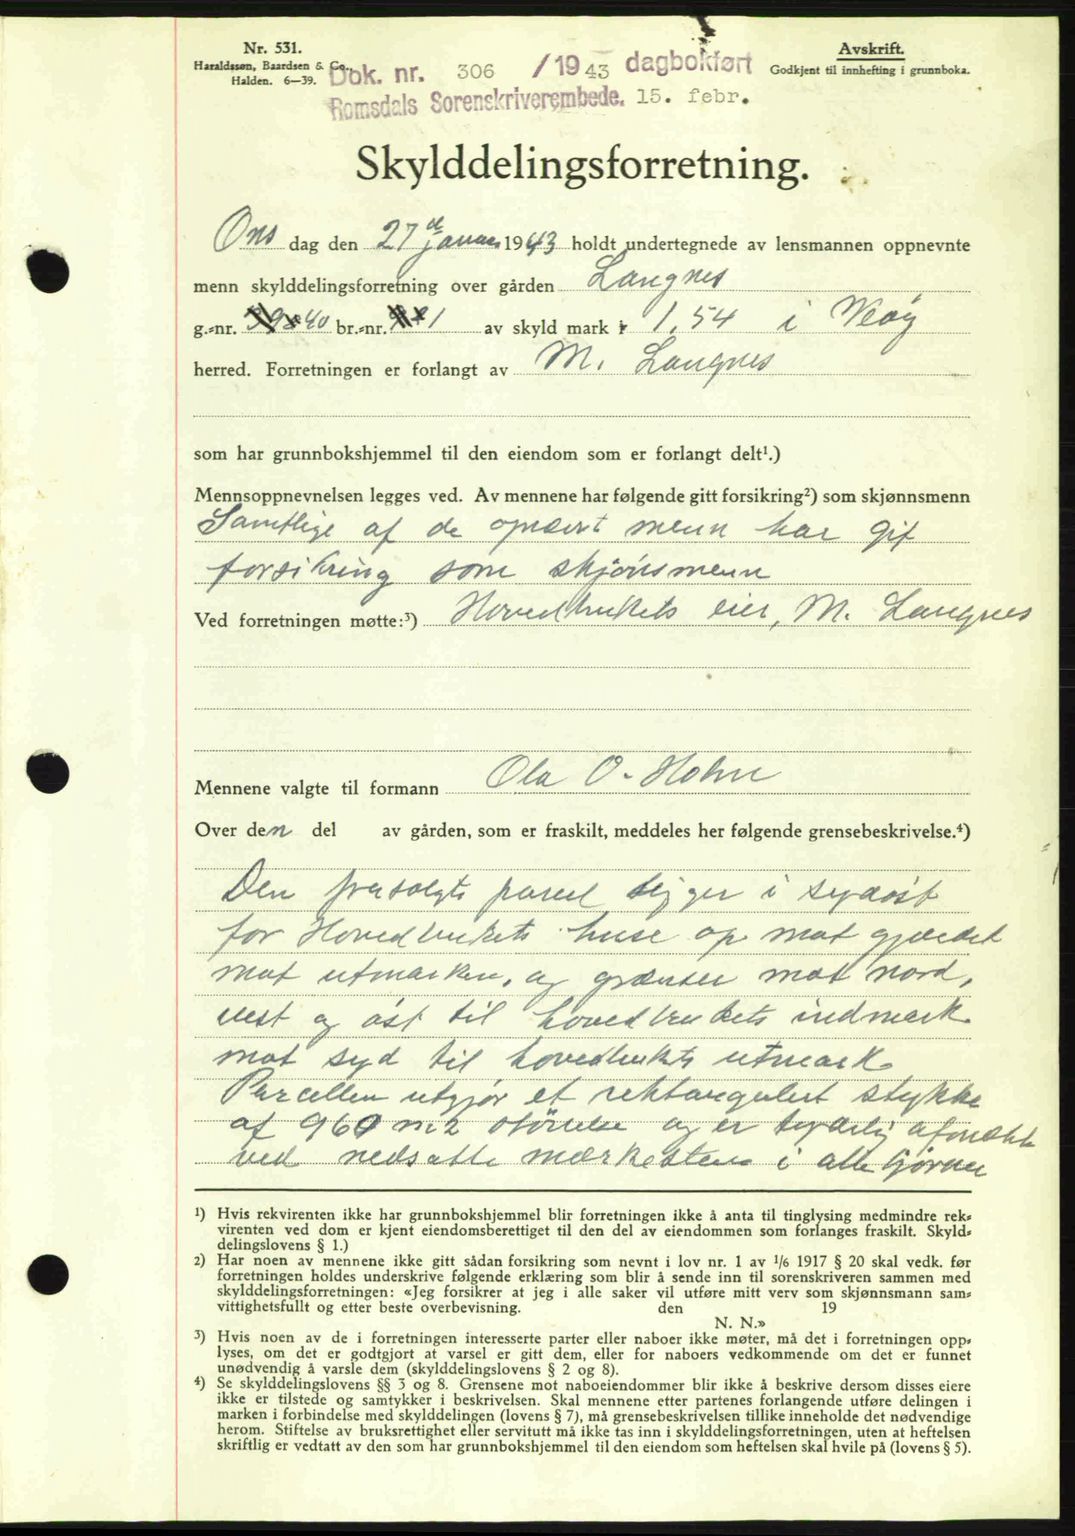 Nr. 531.
Haraldssøn, Baardsen & Co.,
Halden. 6—39.
Dok. nr. 306 /1943 dagbokført
Romsdals Sorenskriverembede. 15. febr.
Avskrift.
Godkjent til innhefting i grunnboka.
Skylddelingsforretning.
Ons dag den 27 de januar 1943 holdt undertegnede av lensmannen oppnevnte
menn skylddelingsforretning over gården Langnes
g.-nr. 40 br.-nr. 1 av skyld mark 1,54 i Veøy
herred. Forretningen er forlangt av M. Langnes
som har grunnbokshjemmel til den eiendom som er forlangt delt¹.)
Mennsoppnevnelsen legges ved. Av mennene har følgende gitt forsikring²) som skjønnsmenn
Samtlige af de opnævt menn har git
forsikring som skjønsmenn
Ved forretningen møtte:³) Hovedbrukets eier, M. Langnes
Mennene valgte til formann Ola O. Holm
Over den del av gården, som er fraskilt, meddeles her følgende grensebeskrivelse.⁴)
Den frasolgte parcel ligger i sydøst
for Hovedbrukets huse op mot gjærdet
mot utmarken, og grænser mot nord,
vest og øst til hovedbrukets indmark
mot syd til hovedbrukets utmark
Parcellen utgjør et rektangulert stykke
af 960 m2 størrelse og er tydelig afmærkt
ved nedsatte merkestene i alle hjørner
¹) Hvis rekvirenten ikke har grunnbokshjemmel blir forretningen ikke å anta til tinglysing medmindre rek-
virenten ved dom er kjent eiendomsberettiget til den del av eiendommen som forlanges fraskilt. Skyld-
delingslovens § 1.)
²) Har noen av mennene ikke gitt sådan forsikring som nevnt i lov nr. 1 av ¹/₆ 1917 § 20 skal vedk. før
forretningen holdes underskrive følgende erklæring som blir å sende inn til sorenskriveren sammen med
skylddelingsforretningen: «Jeg forsikrer at jeg i alle saker vil utføre mitt verv som skjønnsmann sam-
vittighetsfullt og etter beste overbevisning. den 19
N. N.»
³) Hvis noen av de i forretningen interesserte parter eller naboer ikke møter, må det i forretningen opp-
lyses, om det er godtgjort at varsel er gitt dem, eller for naboers vedkommende om det er funnet
unødvendig å varsle dem (skylddelingslovens § 2 og 8).
⁴) Se skylddelingslovens §§ 3 og 8. Grensene mot naboeiendommer blir ikke å beskrive dersom disses eiere
ikke er tilstede og samtykker i beskrivelsen. Skal mennene etter partenes forlangende utføre delingen i
marken i forbindelse med skylddelingen (lovens § 7), må grensebeskrivelsen tillike inneholde det nødvendige
herom. Stiftelse av bruksrettighet eller servitutt må ikke tas inn i skylddelingsforretningen, uten at heftelsen
skriftlig er vedtatt av den som har grunnbokshjemmel til den eiendom som heftelsen skal hvile på (lovens § 5).